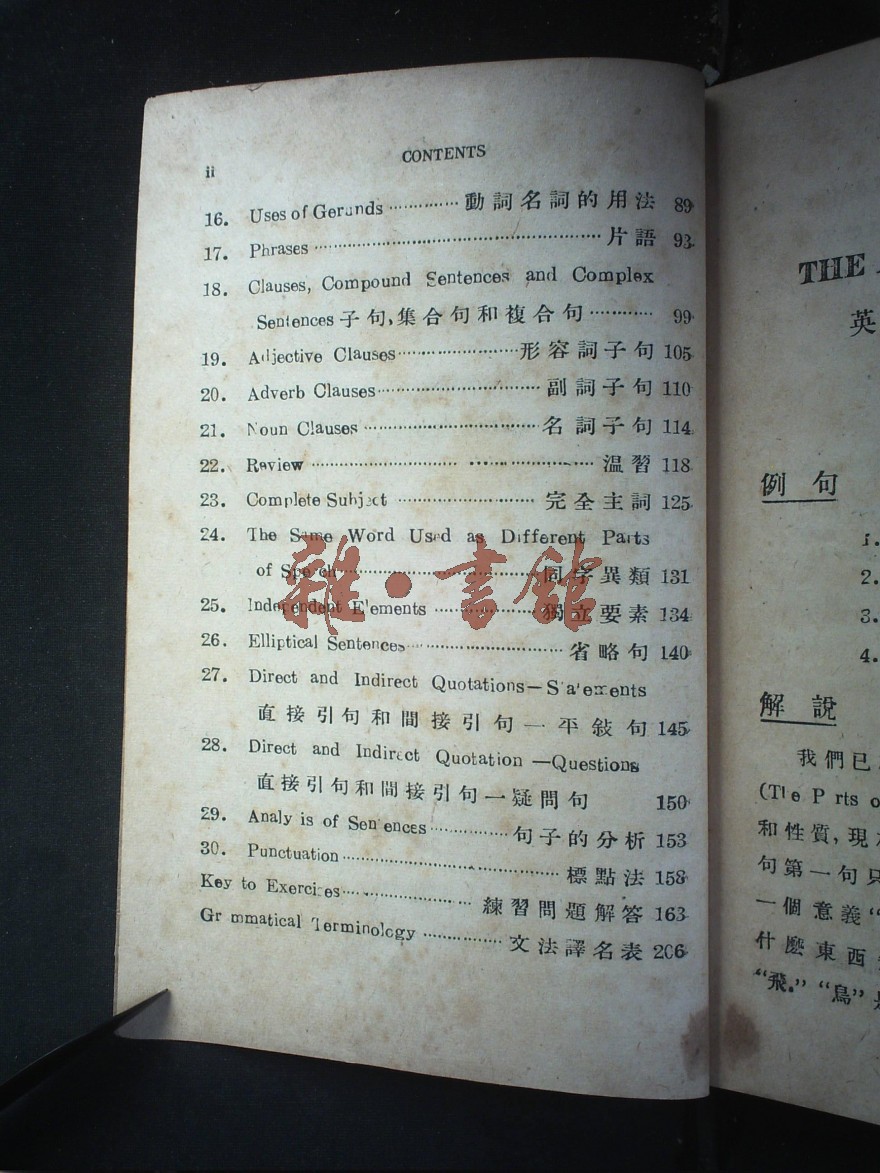 ii
CONTENTS
16. Uses of Gerunds 動詞名詞的用法 89
17. Phrases 片語 93
18. Clauses, Compound Sentences and Complex
Sentences 子句,集合句和複合句 99
19. Adjective Clauses 形容詞子句 105
20. Adverb Clauses 副詞子句 110
21. Noun Clauses 名詞子句 114
22. Review 溫習 118
23. Complete Subject 完全主詞 125
24. The Same Word Used as Different Parts
of Speech 同字異類 131
25. Independent Elements 獨立要素 134
26. Elliptical Sentences 省略句 140
27. Direct and Indirect Quotations—Statements
直接引句和間接引句—平敍句 145
28. Direct and Indirect Quotation —Questions
直接引句和間接引句—疑問句 150
29. Analysis of Sentences 句子的分析 153
30. Punctuation 標點法 158
Key to Exercises 練習問題解答 163
Grammatical Terminology 文法譯名表 206
雜·書館
THE
英
例句
1.
2.
3.
4.
解說
我們已
(The Parts o
和性質,現
句第一句只
一個意義“
什麼東西
“飛.”“鳥”是